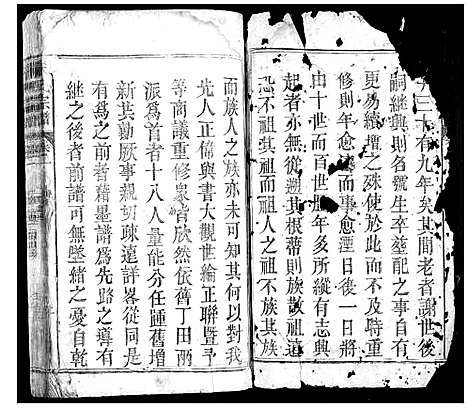 三十有九年矣其間老者謝世後
嗣繼興則名號生卒葬配之事自有
更易續增之殊使於此而不及時重
修則年愈遠而愈湮日後一日將
由十世而百世年多所縱有志興
起者亦無從遡其根蒂則族散祖遠
恐不祖其祖人之人不族其族
而族人之族亦未可知其何以對我
先人正倫與書大觀世綸正聯暨予
等商議重修衆皆欣然依舊丁田兩
派爲首者十八人量能分任匯舊增
新其勤厥事親切疎遠詳畧從同是
有爲之前者藉墨譜爲先路之導有
繼之後者前譜可無墜緒之憂自乾